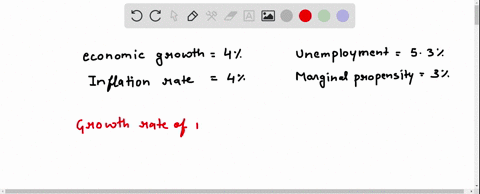 economic growth = 4%
Unemployment = 5.3%
Inflation rate = 4%
Marginal propensity = 3%
Growth rate of